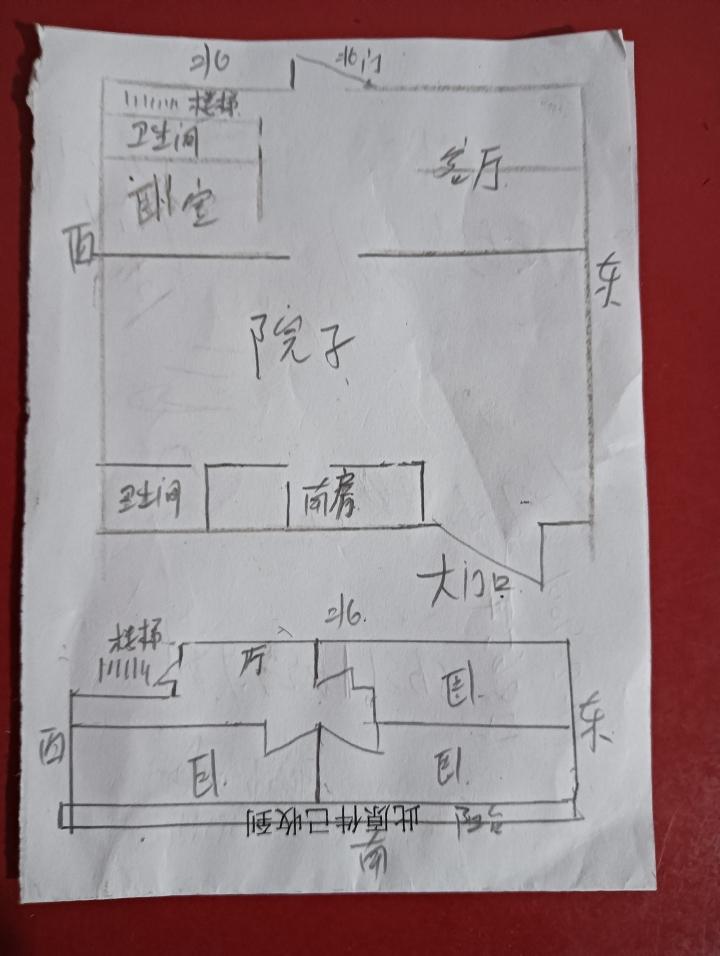 北 北门
楼梯
卫生间
卧室
客厅
西
东
院子
卫生间
南房
大门口
北
楼梯
厅
卧
西
东
卧
卧
此原件已收到
南